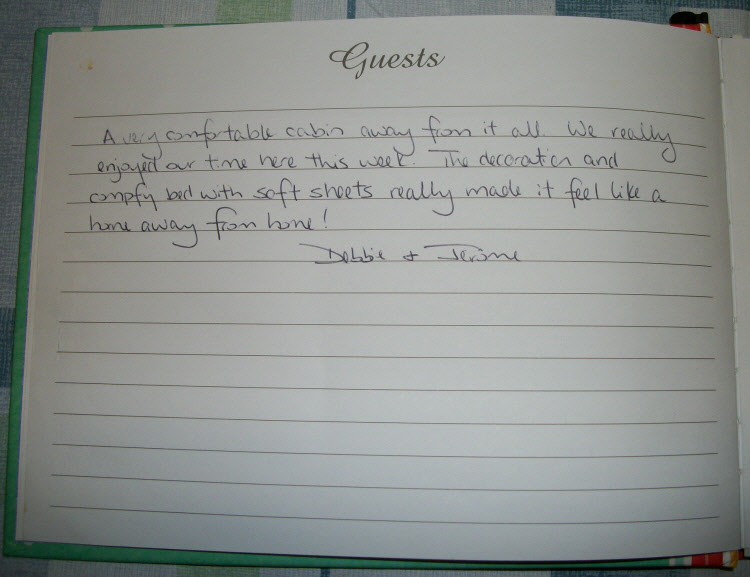 Guests
A very comfortable cabin away from it all. We really
enjoyed our time here this week. The decoration and
compfy bed with soft sheets really made it feel like a
home away from home!
Debbie + Jerome